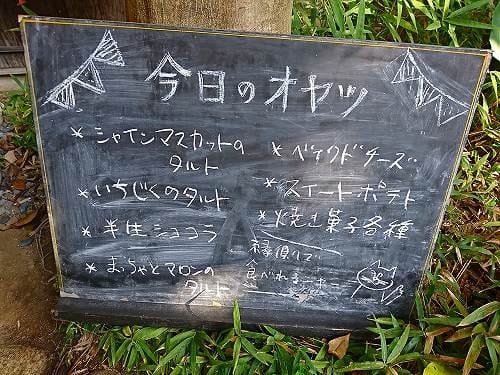 今日のオヤツ
* シャインマスカットの
タルト
* いちじくのタルト
* 半生ショコラ
* まっちゃとマロンの
タルト
* ベイクドチーズ
* スイートポテト
* 焼き菓子各種
縁側で
食べれるニャー